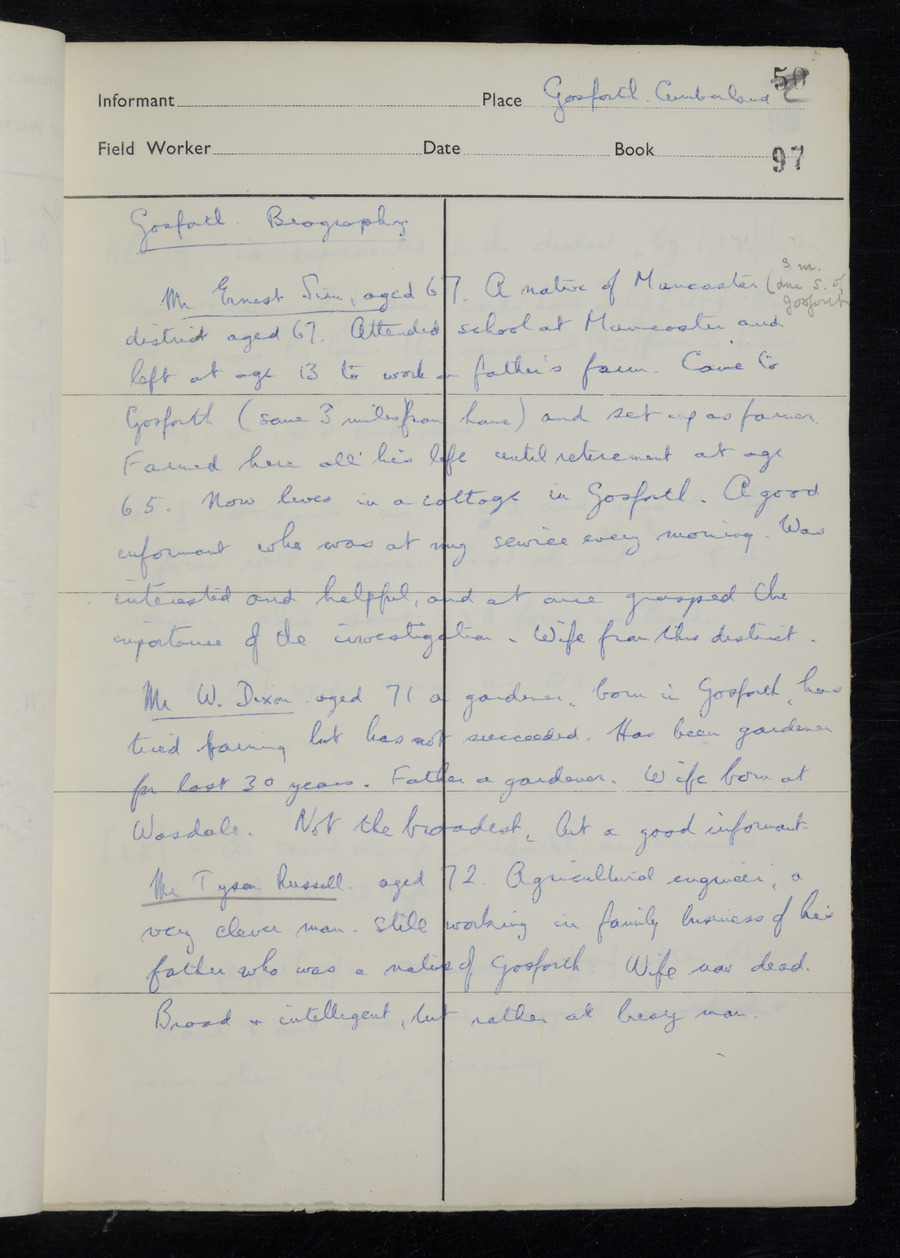 Informant Place Gosforth. Cumberland
50
Field Worker Date Book
97
Gosforth Biography
Mr Ernest Sim, aged 67. A native of Muncaster (3 m.
due S. of
Gosforth
district aged 67. Attended school at Muncaster and
left at age 13 to work on father's farm. Came to
Gosforth (some 3 miles from home) and set up as farmer.
Farmed here all his life until retirement at age
65. Now lives in a cottage in Gosforth. A good
informant who was at my service every morning. Was
interested and helpful, and at once grasped the
importance of the investigation. Wife from this district.
Mr W. Dixon aged 71 a gardener, born in Gosforth, has
tried farming but has not succeeded. Has been gardener
for last 30 years. Father a gardener. Wife born at
Wasdale. Not the broadest, but a good informant.
Mr Tyson Russell. aged 72. Agricultural engineer, a
very clever man. Still working in family business of his
father who was a native of Gosforth. Wife now dead.
Broad & intelligent, but rather a busy man.